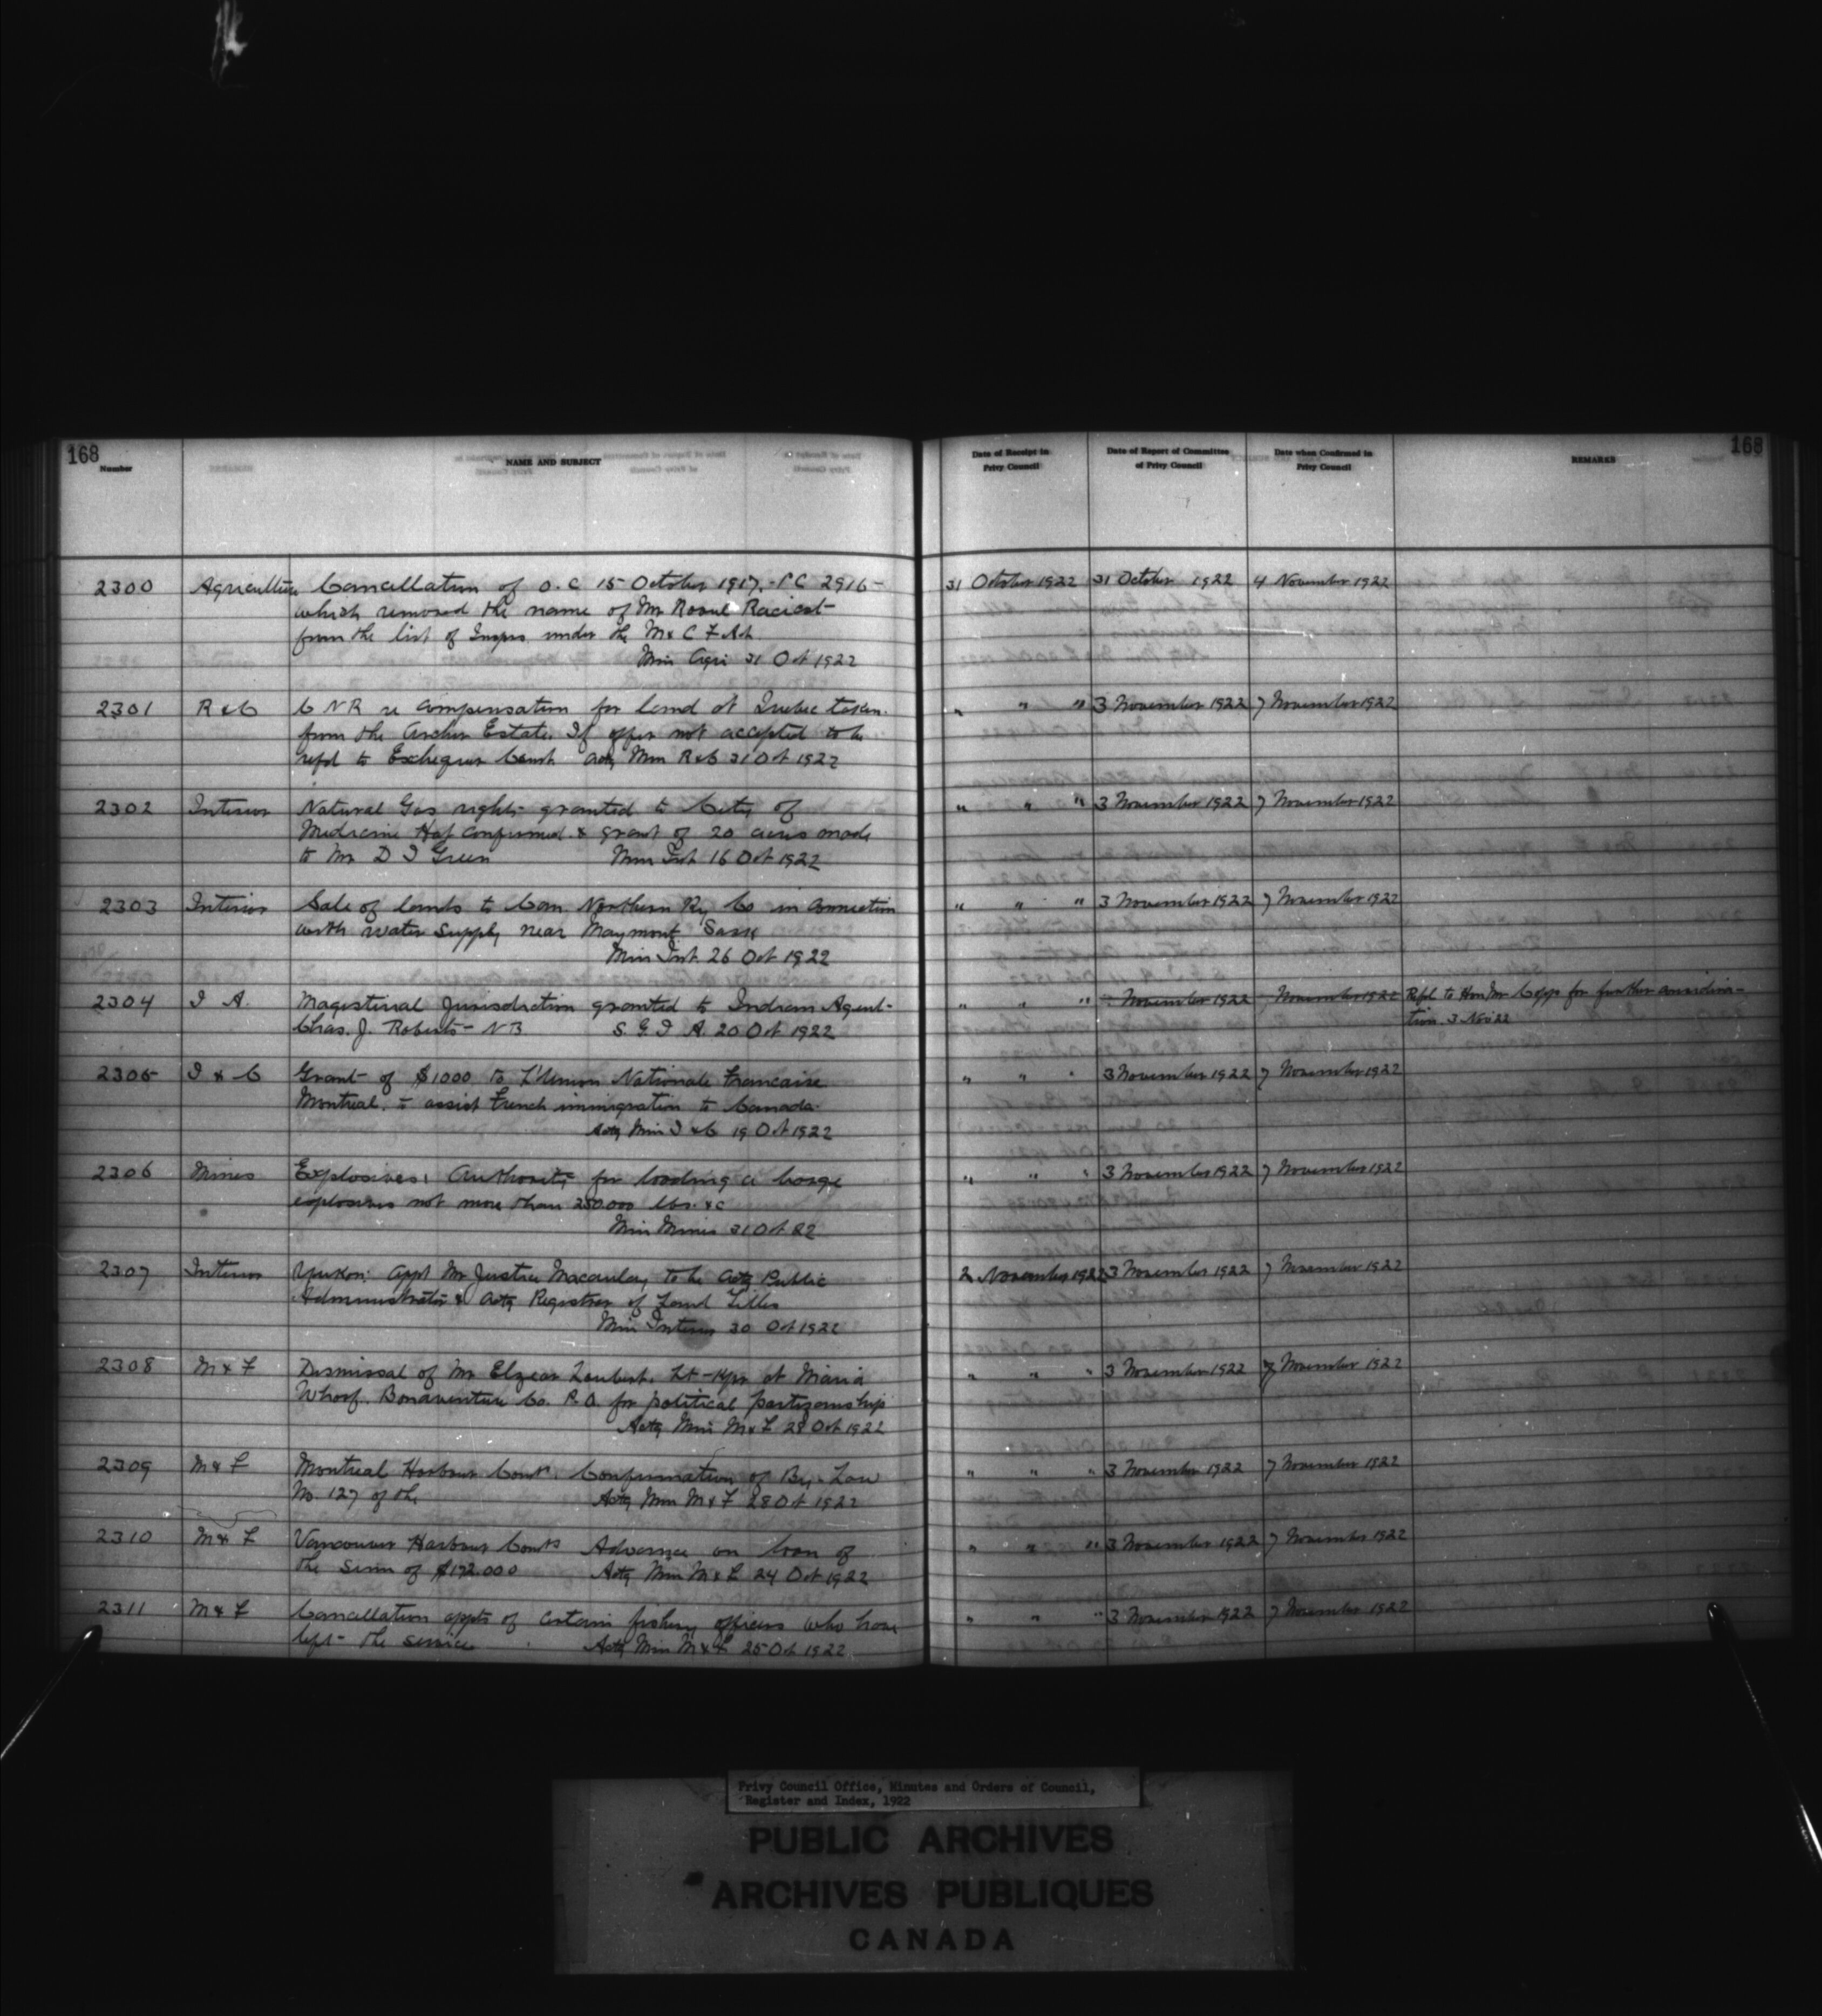 168
Number
NAME AND SUBJECT
Date of Receipt in
Privy Council
Date of Report of Committee
of Privy Council
Date when Confirmed in
Privy Council
REMARKS
168
2300 Agriculture Cancellation of O.C 15 October 1917. - P C 2916 - 31 October 1922 31 October 1922 4 November 1922
which removed the name of Mr Raoul Racicot
from the list of Insprs under the M & C F Act
Min Agri 31 Oct 1922
2301 R & C C N R re compensation for land at Quebec taken " " " 3 November 1922 7 November 1922
from the Archer Estate. If offer not accepted to be
refd to Exchequer Court Actg Min R & C 31 Oct 1922
2302 Interior Natural Gas rights granted to City of " " " 3 November 1922 7 November 1922
Medicine Hat confirmed & grant of 20 acres made
to Mr D I Green Min Int 16 Oct 1922
2303 Interior Sale of lands to Can. Northern Ry Co in connection " " " 3 November 1922 7 November 1922
with water supply near Maymont Sask
Min Int 26 Oct 1922
2304 I A. Magisterial Jurisdiction granted to Indian Agent " " " November 1922 November 1922 Refd to Hon Mr Copp for further considera-
Chas. J. Roberts - N B S. G. I A. 20 Oct 1922 tion 3 Nov 22
2305 I & C Grant of $1000 to L'Union Nationale Francaise " " " 3 November 1922 7 November 1922
Montreal. to assist French immigration to Canada
Actg Min I & C 19 Oct 1922
2306 Mines Explosives: Authority for loading a barge " " " 3 November 1922 7 November 1922
explosives not more than 250.000 lbs. &c
Min Mines 31 Oct 22
2307 Interior Yukon: Appt Mr Justice Macaulay to be actg Public 2 November 1922 3 November 1922 7 November 1922
Administrator & actg Registrar of Land Titles
Min Interior 30 Oct 1922
2308 M & F Dismissal of Mr Elzear Loubert. Lt-Kpr at Maria " " " 3 November 1922 7 November 1922
Wharf. Bonaventure Co. P. Q. for political partizanship
Actg Min M & F 28 Oct 1922
2309 M & F Montreal Harbour Comrs. Confirmation of By-Law " " " 3 November 1922 7 November 1922
No. 127 of the Actg Min M & F 28 Oct 1922
2310 M & F Vancouver Harbour Comrs Advance on loan of " " " 3 November 1922 7 November 1922
the sum of $172.000 Actg Min M & F 24 Oct 1922
2311 M & F Cancellation appts of certain fishery officers who have " " " 3 November 1922 7 November 1922
left the service Actg Min M & F 25 Oct 1922
Privy Council Office, Minutes and Orders of Council,
Register and Index, 1922
PUBLIC ARCHIVES
ARCHIVES PUBLIQUES
CANADA